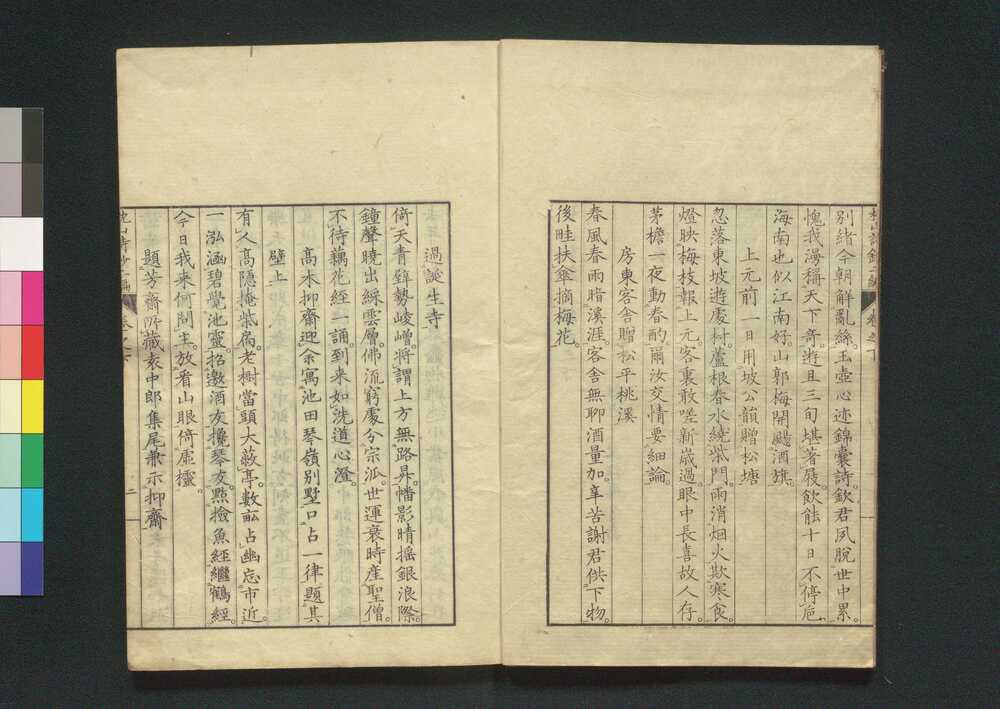 別緒今朝解亂絲。玉壺心迹錦囊詩。欽君夙脫世中累。
愧我漫稱天下奇。遊且三旬堪著屐。飲能十日不停卮。
海南也似江南好。山郭梅開颺酒旗。
上元前一日用坡公韻贈松塘
忽落東坡遊處村。蘆根春水繞柴門。雨消烟火欺寒食。
燈映梅枝報上元。客裏敢嗟新歲過。眼中長喜故人存。
茅檐一夜動春酌。爾汝交情要細論。
房東客舍贈松平桃溪
春風春雨暗溪涯。客舍無聊酒量加。辛苦謝君供下物。
後畦扶傘摘梅花。
過誕生寺
倚天青嶂勢崚嶒。將謂上方無路昇。幡影晴搖銀浪際。
鐘聲曉出綵雲層。佛流窮處分宗派。世運衰時産聖僧。
不待藕花經一誦。到来如洗道心澄。
高木抑齋迎余寓池田琴嶺別墅口占一律題其
壁上
有人高隱掩柴扃。老樹當頭大蔽亭。數畝占幽忘市近。
一泓涵碧覺池靈。招邀酒友攙琴友。點撿魚經繼鶴經。
今日我来何問主。放看山眼倚虛櫺。
題芳齋所藏袁中郎集尾兼示抑齋